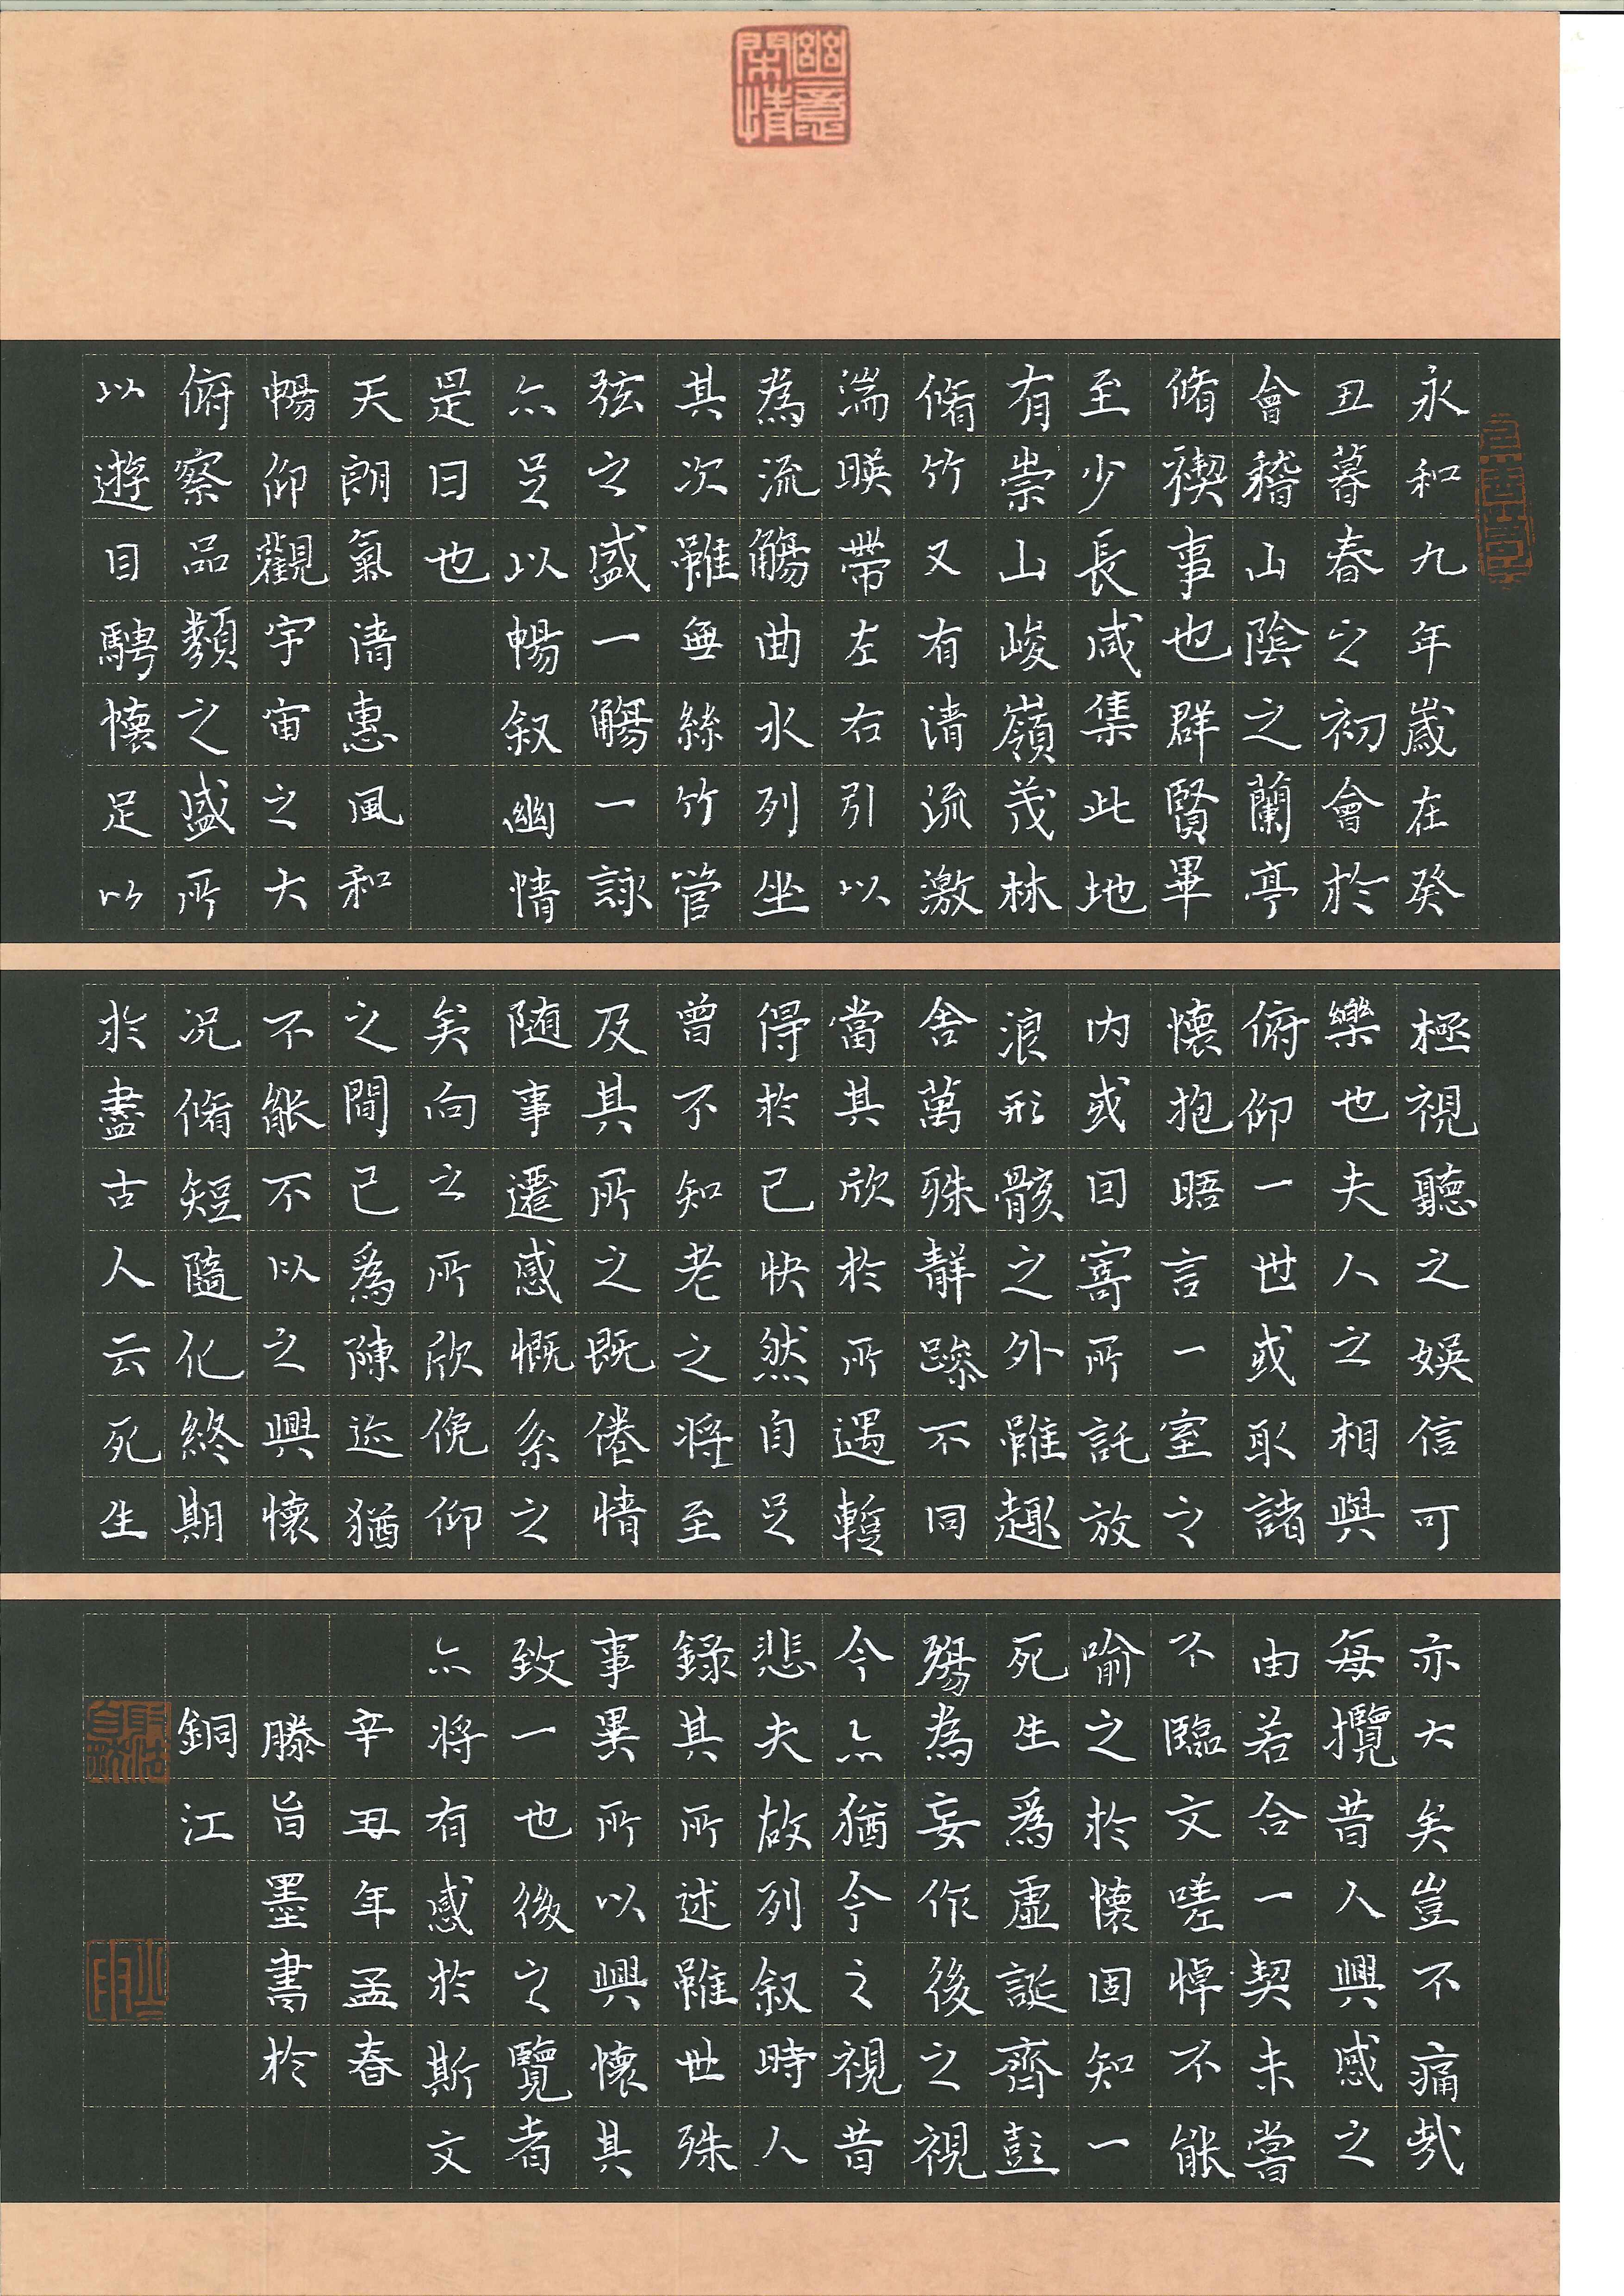 幽意閑情
永和九年歲在癸
丑暮春之初會於
會稽山陰之蘭亭
脩禊事也群賢畢
至少長咸集此地
有崇山峻嶺茂林
脩竹又有清流激
湍暎帶左右引以
為流觴曲水列坐
其次雖無絲竹管
弦之盛一觴一詠
亦足以暢叙幽情
是日也
天朗氣清惠風和
暢仰觀宇宙之大
俯察品類之盛所
以遊目騁懷足以
極視聽之娛信可
樂也夫人之相與
俯仰一世或取諸
懷抱晤言一室之
内或因寄所託放
浪形骸之外雖趣
舍萬殊靜躁不同
當其欣於所遇暫
得於己快然自足
曾不知老之將至
及其所之既倦情
随事遷感慨系之
矣向之所欣俛仰
之間已為陳迹猶
不能不以之興懷
况脩短隨化終期
於盡古人云死生
亦大矣豈不痛哉
每攬昔人興感之
由若合一契未嘗
不臨文嗟悼不能
喻之於懷固知一
死生為虛誕齊彭
殤為妄作後之視
今亦猶今之視昔
悲夫故列叙時人
錄其所述雖世殊
事異所以興懷其
致一也後之覽者
亦將有感於斯文
辛丑年孟春
滕旨墨書於
銅江